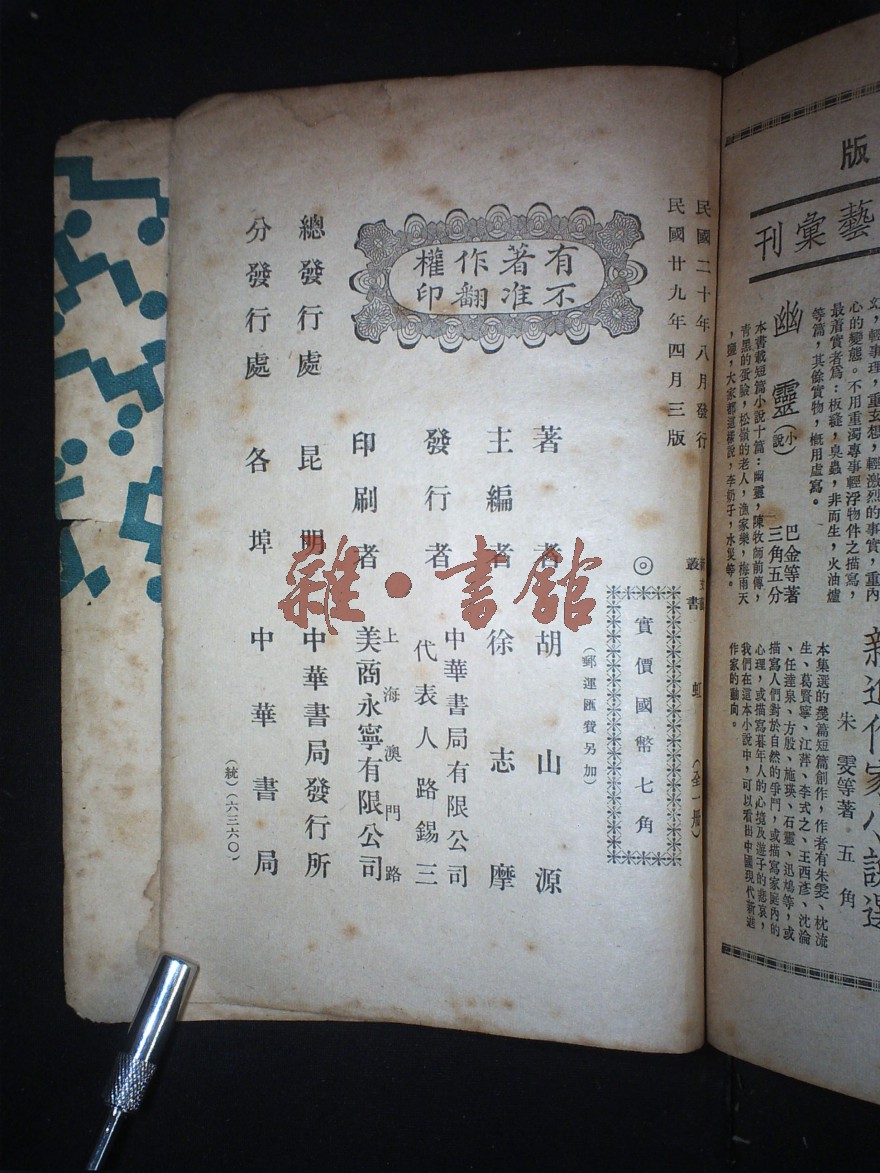 版
藝彙刊
幽靈(小說)
巴金等著
三角五分
文,輕事理,重玄想,輕激烈的事實,重內
心的變態。不用重濁專事輕浮物件之描寫,
最着實者爲:板縫,臭蟲,非而生,火油爐
等篇,其餘實物,槪用虛寫。
本書載短篇小說十篇:幽靈,陳牧師前傳,
靑黑的蛋臉,松嶺的老人,漁家樂,梅雨天
,鹽,大家都這樣說,李奶子,水災等。
新進作家小說選
朱雯等著 五角
本集選的幾篇短篇創作,作者有朱雯、枕流
生、葛賢寧、江萍、李式之、王西彥、沈淪
、任達泉、方殷、施瑛、石靈、迅鳩等,或
描寫人們對於自然的爭鬥,或描寫家庭內的
心理,或描寫暮年人的心境及遊子的悲哀,
我們在這本小說中,可以看出中國現代新進
作家的動向。
民國二十年八月發行
民國廿九年四月三版
叢書 虹 (全一冊)
◎實價國幣七角
(郵運匯費另加)
有著作權
不准翻印
著者 胡山源
主編者 徐志摩
發行者 中華書局有限公司
代表人路錫三
印刷者 上海澳門路
美商永寧有限公司
總發行處 昆明 中華書局發行所
分發行處 各埠 中華書局
(統)(六三六〇)
雜·書館